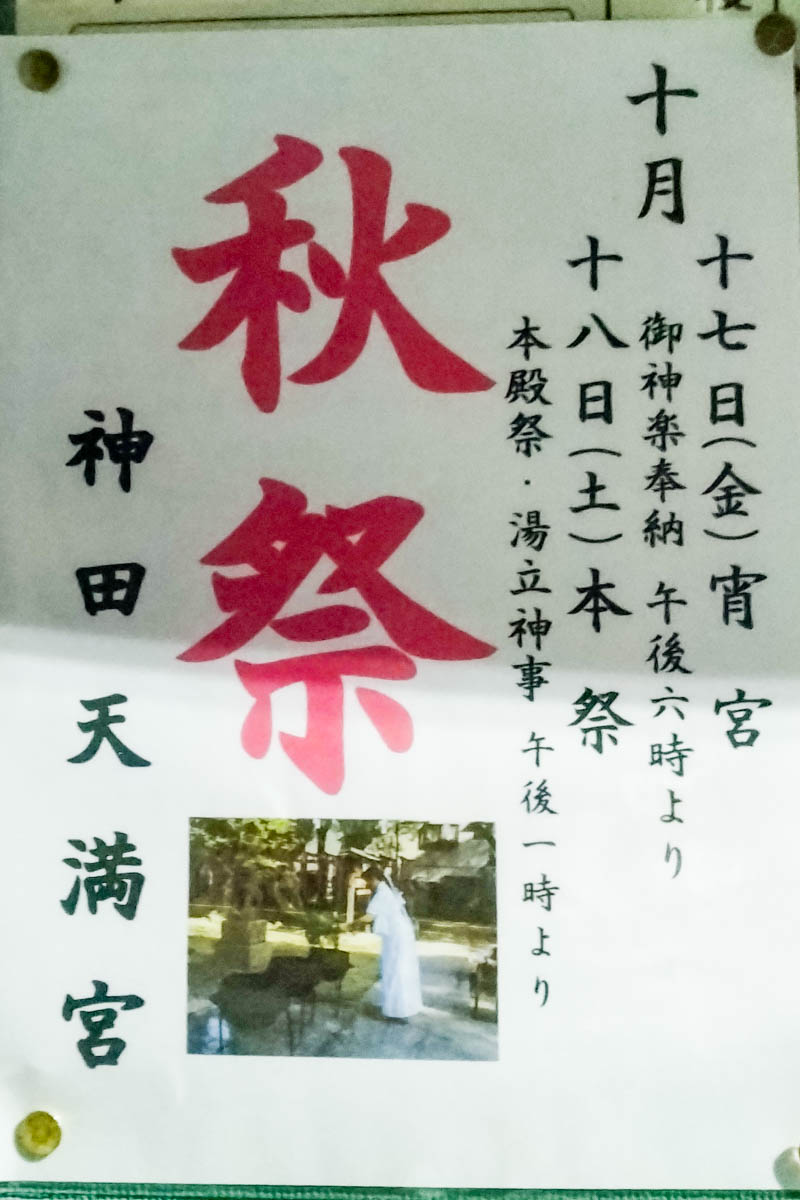 十月
十七日(金)宵宮
御神楽奉納 午後六時より
十八日(土)本祭
本殿祭・湯立神事 午後一時より
秋祭
神田天満宮